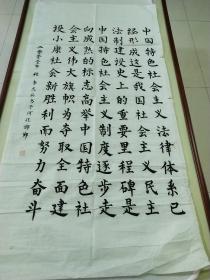 中国特色社会主义法律体系已
经形成这是我国社会主义民主
法制建设史上的重要里程碑是
中国特色社会主义制度逐步走
向成熟的标志高举中国特色社
会主义伟大旗帜为夺取全面建
设小康社会新胜利而努力奋斗
书于河北邯郸